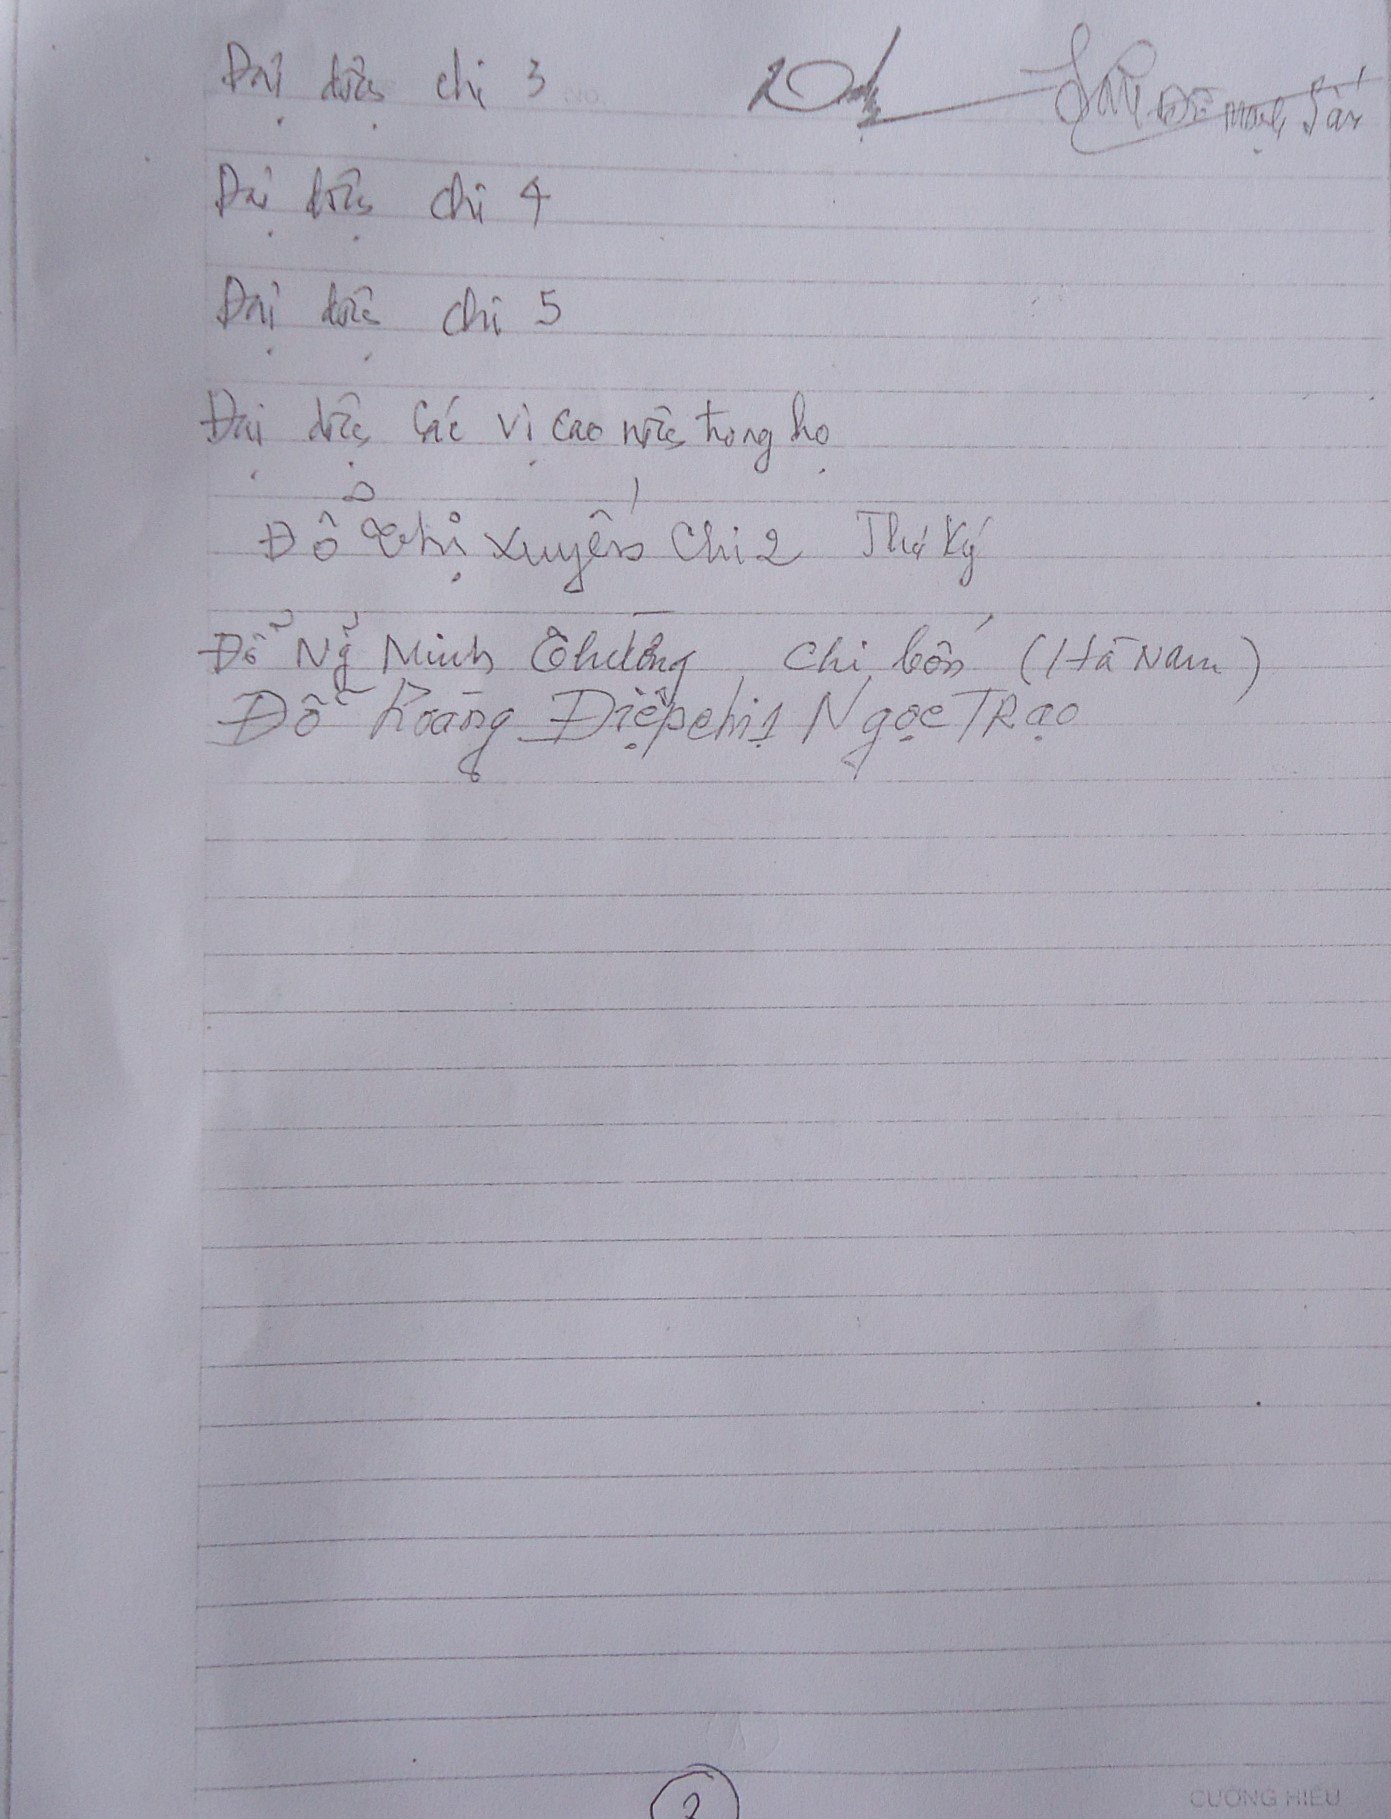 Đại diện chi 3 Đỗ Mạnh Sấn
Đại diện chi 4
Đại diện chi 5
Đại diện các vị cao niên trong họ
Đỗ Thị Xuyến Chi 2 Thư Ký
Đỗ Minh chi bốn (Hà Nam)
Đỗ Hoàng Điệp chi 1 Ngọc TRạo
2
CƯỜNG HIẾU